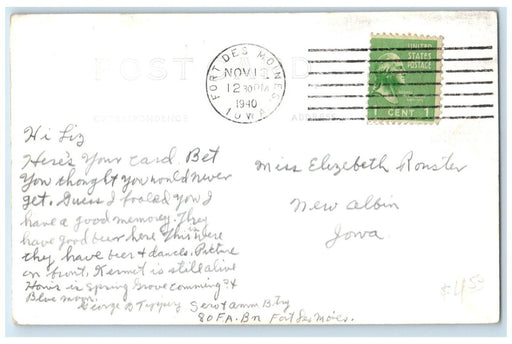 POST CARD
CORRESPONDENCE
ADDRESS
FORT DES MOINES
NOV 1
12 30 PM
1940
IOWA
UNITED
STATES
POSTAGE
1 CENT 1
Hi Liz
Here's Your Card. Bet
You thought you would never
get. Guess I fooled you I
have a good memory. They
have good beer here This is were
they have beer & dances. Picture
on front, Kermit is still alive
How is Spring Grove comming &
Blue moon.
George Serv & amm Btry
80 F.A. Bn Fort Des Moines.
Miss Elizebeth
New Albin
Iowa